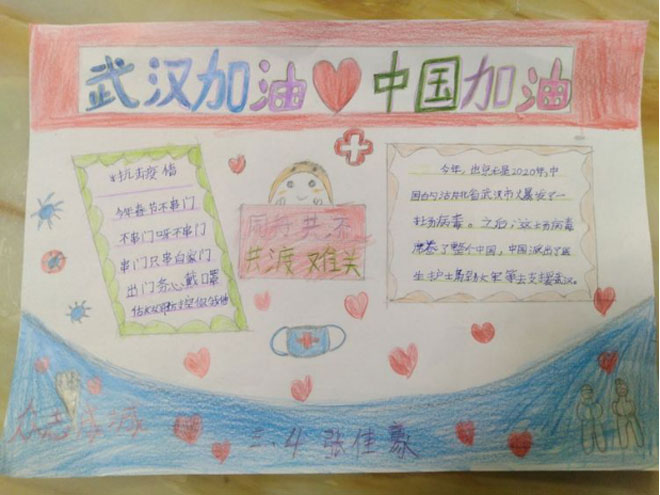 武汉加油 中国加油
抗击疫情
今年春节不串门
不串门呀不串门
串门只串自家门
出门务必戴口罩
同舟共济
共渡难关
今年，也就是2020年,中
国的湖北省武汉市大暴发了一
场病毒。之后,这场病毒
席卷了整个中国，中国派出了医
生护士
军
去支援武汉。
众志成城
三.4 张佳豪